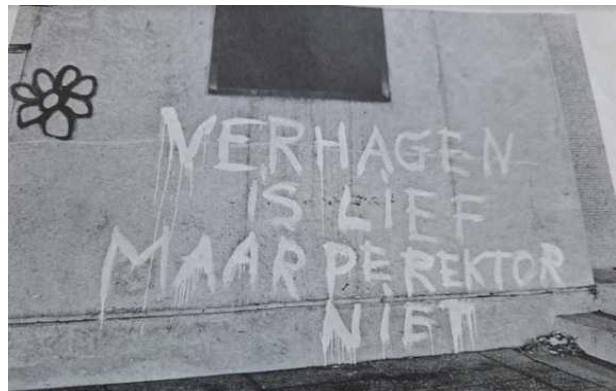 VERHAGEN
IS LIEF
MAAR DE REKTOR
NIET